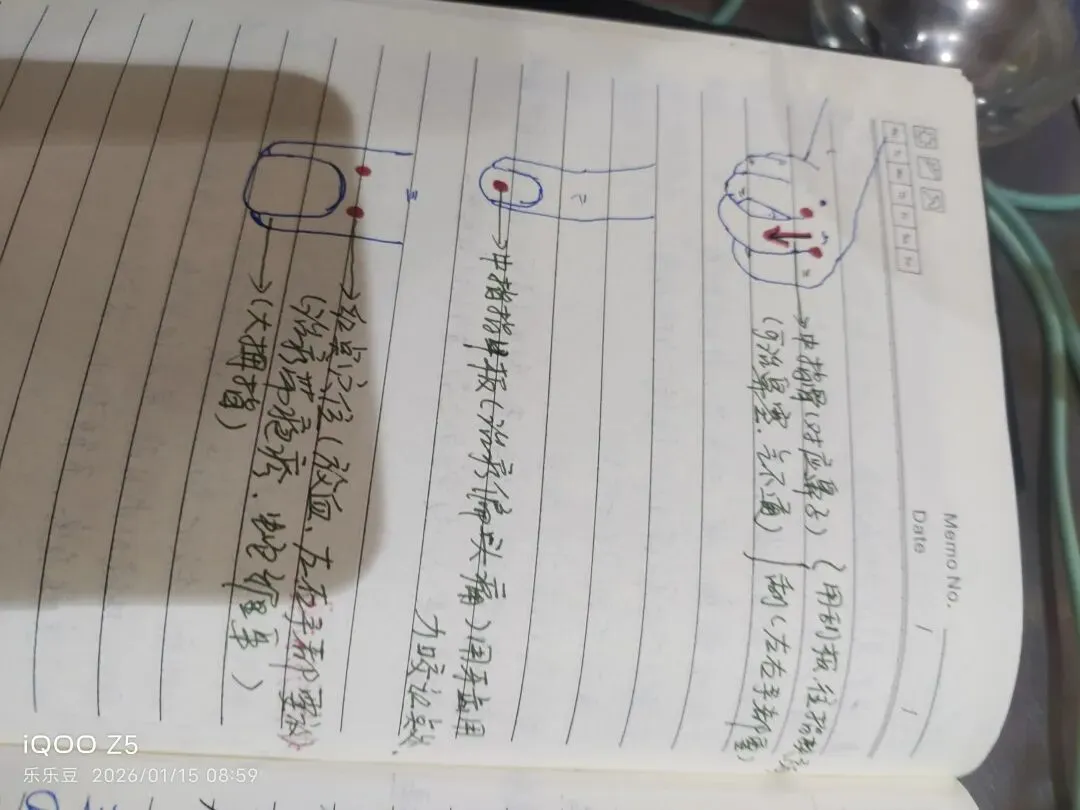 Memo No.
Date / /
→中指背(对应鼻子)(用刮板往指头方
(可治鼻塞.气不通) 刮(左右手都刮)
→中指指甲板(治疗偏头痛)用牙齿用
力咬记号
→红点穴位(放血、左右手都要放)
(治疗带疱疹.
→(大拇指)
iQOO Z5
乐乐豆 2026/01/15 08:59